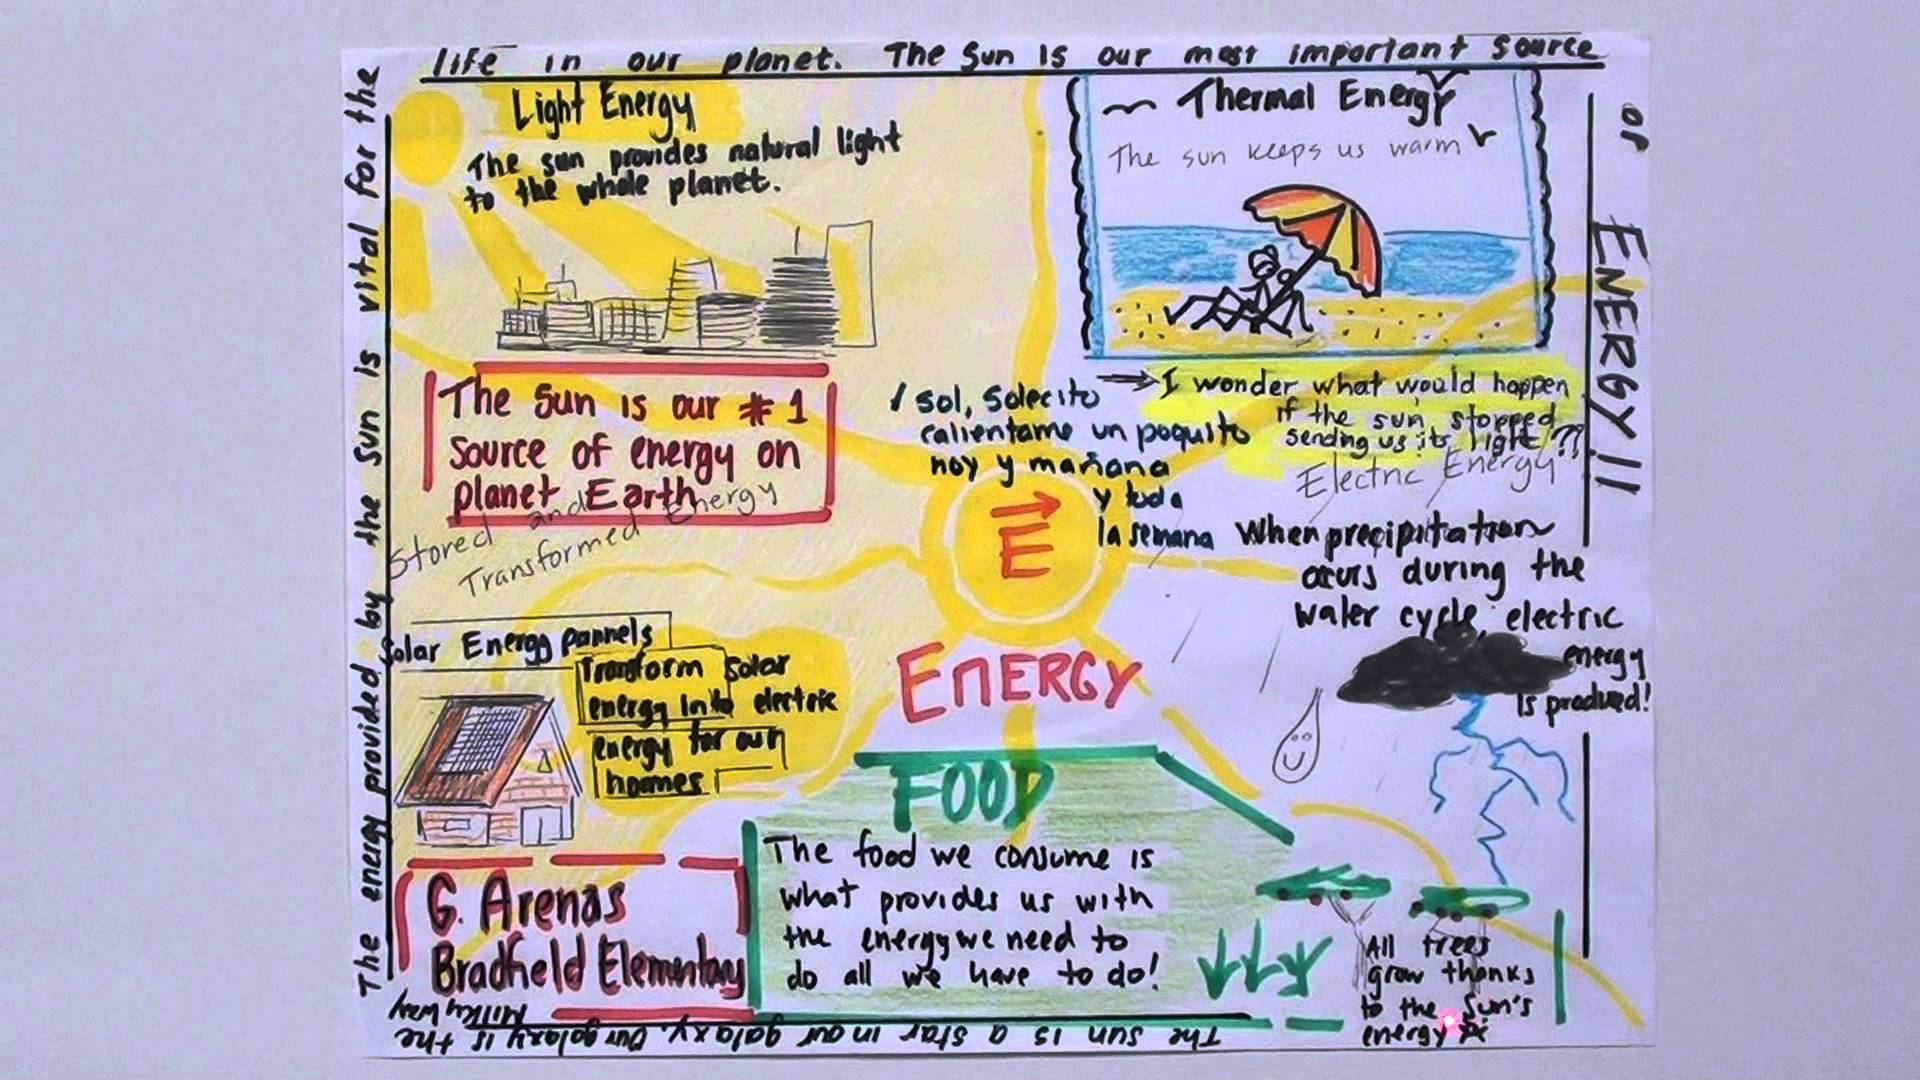 The energy provided by the Sun is vital for the
life in our planet. The Sun Is our most important source
of ENERGY!!
Light Energy
The sun provides natural light
to the whole planet.
Thermal Energy
The sun keeps us warm
The Sun is our #1
source of energy on
planet Earth
sol, solecito
calientame un poquito
hoy y mañana
y toda
la semana
I wonder what would happen
if the sun stopped
sending us its light??
Electric Energy
When precipitation
ocurs during the
water cycle electric
energy
is produced!
Stored and
Transformed Energy
Solar Energy pannels
Transform solar
energy into electric
energy for own
homes
E
ENERGY
FOOD
The food we consume is
what provides us with
the energy we need to
do all we have to do!
All trees
grow thanks
to the Sun's
energy
G. Arenas
Bradfield Elementary
The sun is a star in our galaxy. Our galaxy is the
Milky Way